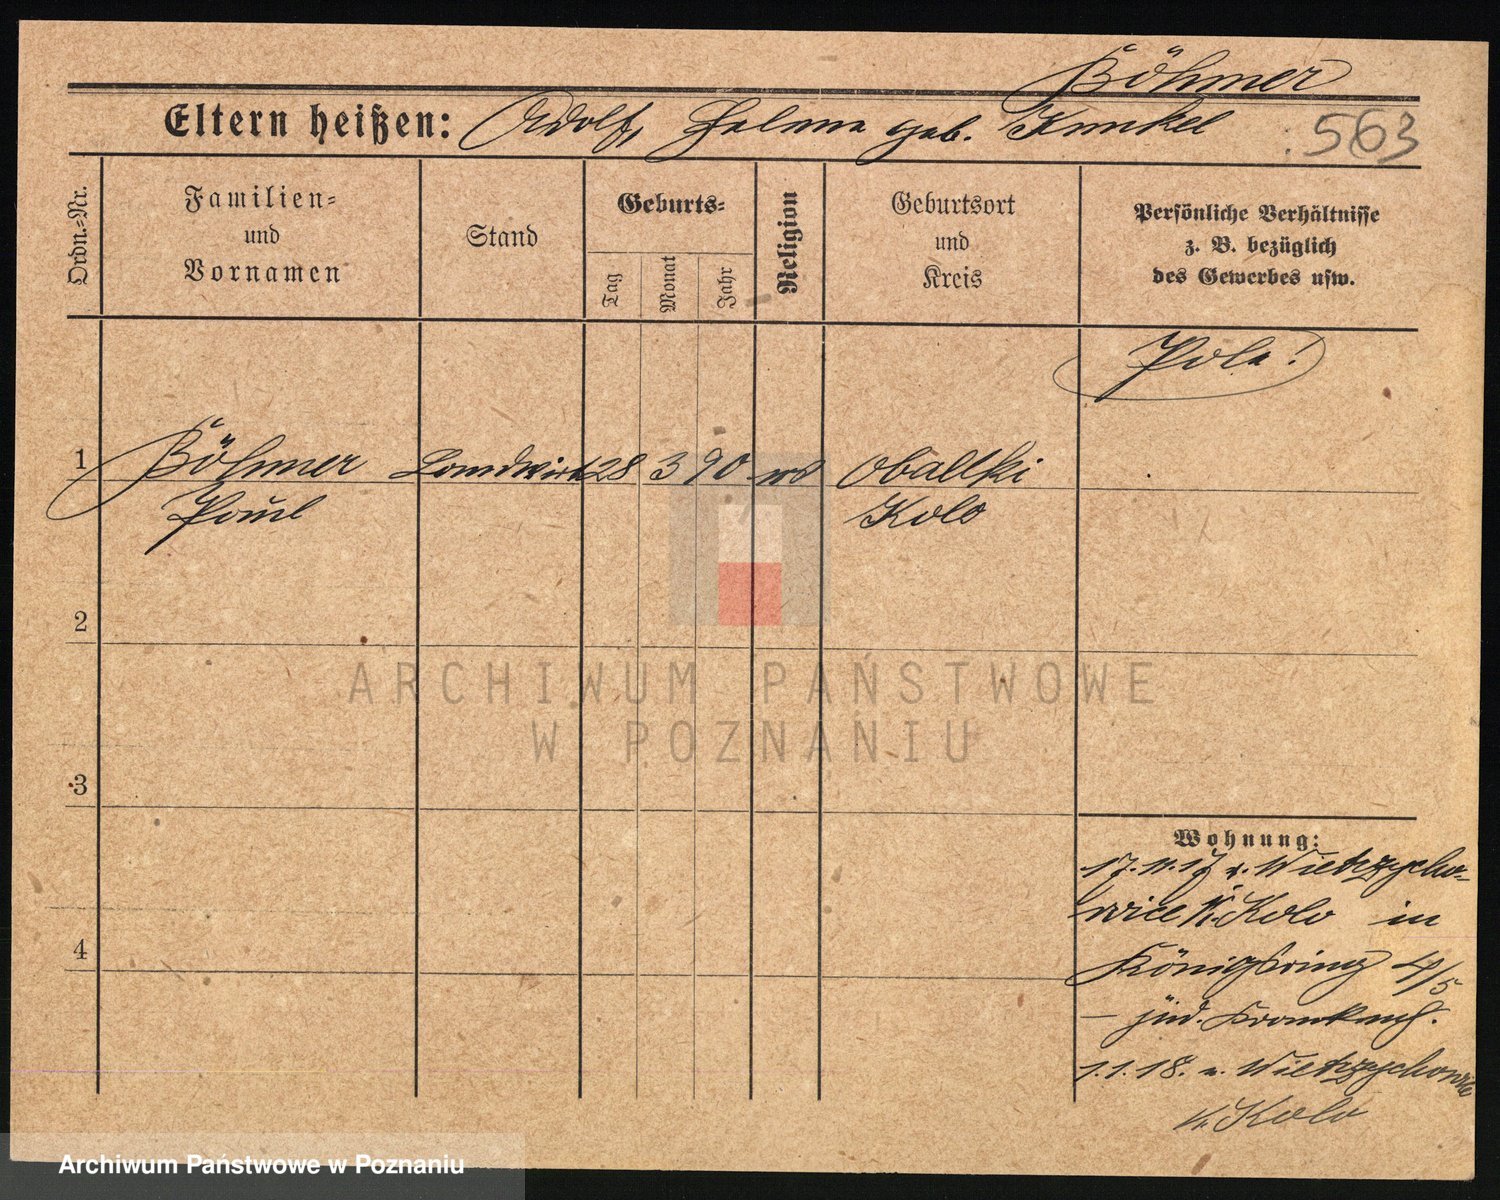 Böhmer
Eltern heißen: Adolf, Helma geb. Kunkel 563
Ordn.-Nr.
Familien-
und
Vornamen
Stand
Geburts-
Tag
Monat
Jahr
Religion
Geburtsort
und
Kreis
Persönliche Verhältnisse
z. B. bezüglich
des Gewerbes usw.
Pole!
1 Böhmer Landwirt 28 3 90 Obalki
Paul Kolo
2
3
4
Wohnung:
17.11.17 v. Wietrzycho-
wice K. Kolo in
Königsring 4/5
– jüd. Krankenh.
1.1.18. n. Wietrzychowice
K. Kolo
ARCHIWUM PAŃSTWOWE
W POZNANIU
Archiwum Państwowe w Poznaniu